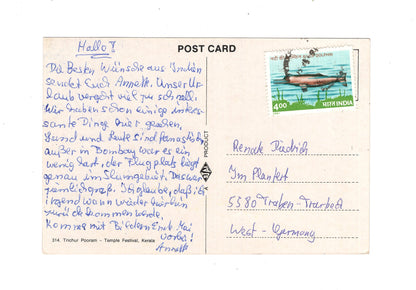 Hallo!
POST CARD
Die Besten Wünsche aus Indien
sendet Euch Annette. Unser Ur-
laub vergeht viel zu schnell.
Wir haben schon einige interes-
sante Dinge hier gesehen.
Land und Leute sind fantastisch
außer in Bombay war es ein
wenig hart, der Flugplatz liegt
genau im Slumgebiet. Das war
ziemlich groß. Ich glaube, daß ich
irgend wann wieder hierhin
zurück kommen werde.
Komme mit Bildern Ende Mai
vorbei!
Annette
314. Trichur Pooram - Temple Festival, Kerala
A PRODUCT
DOLPHIN
4.00
भारत INDIA
Renate
Im Plantert
5580 Traben-Trarbach
West-Germany